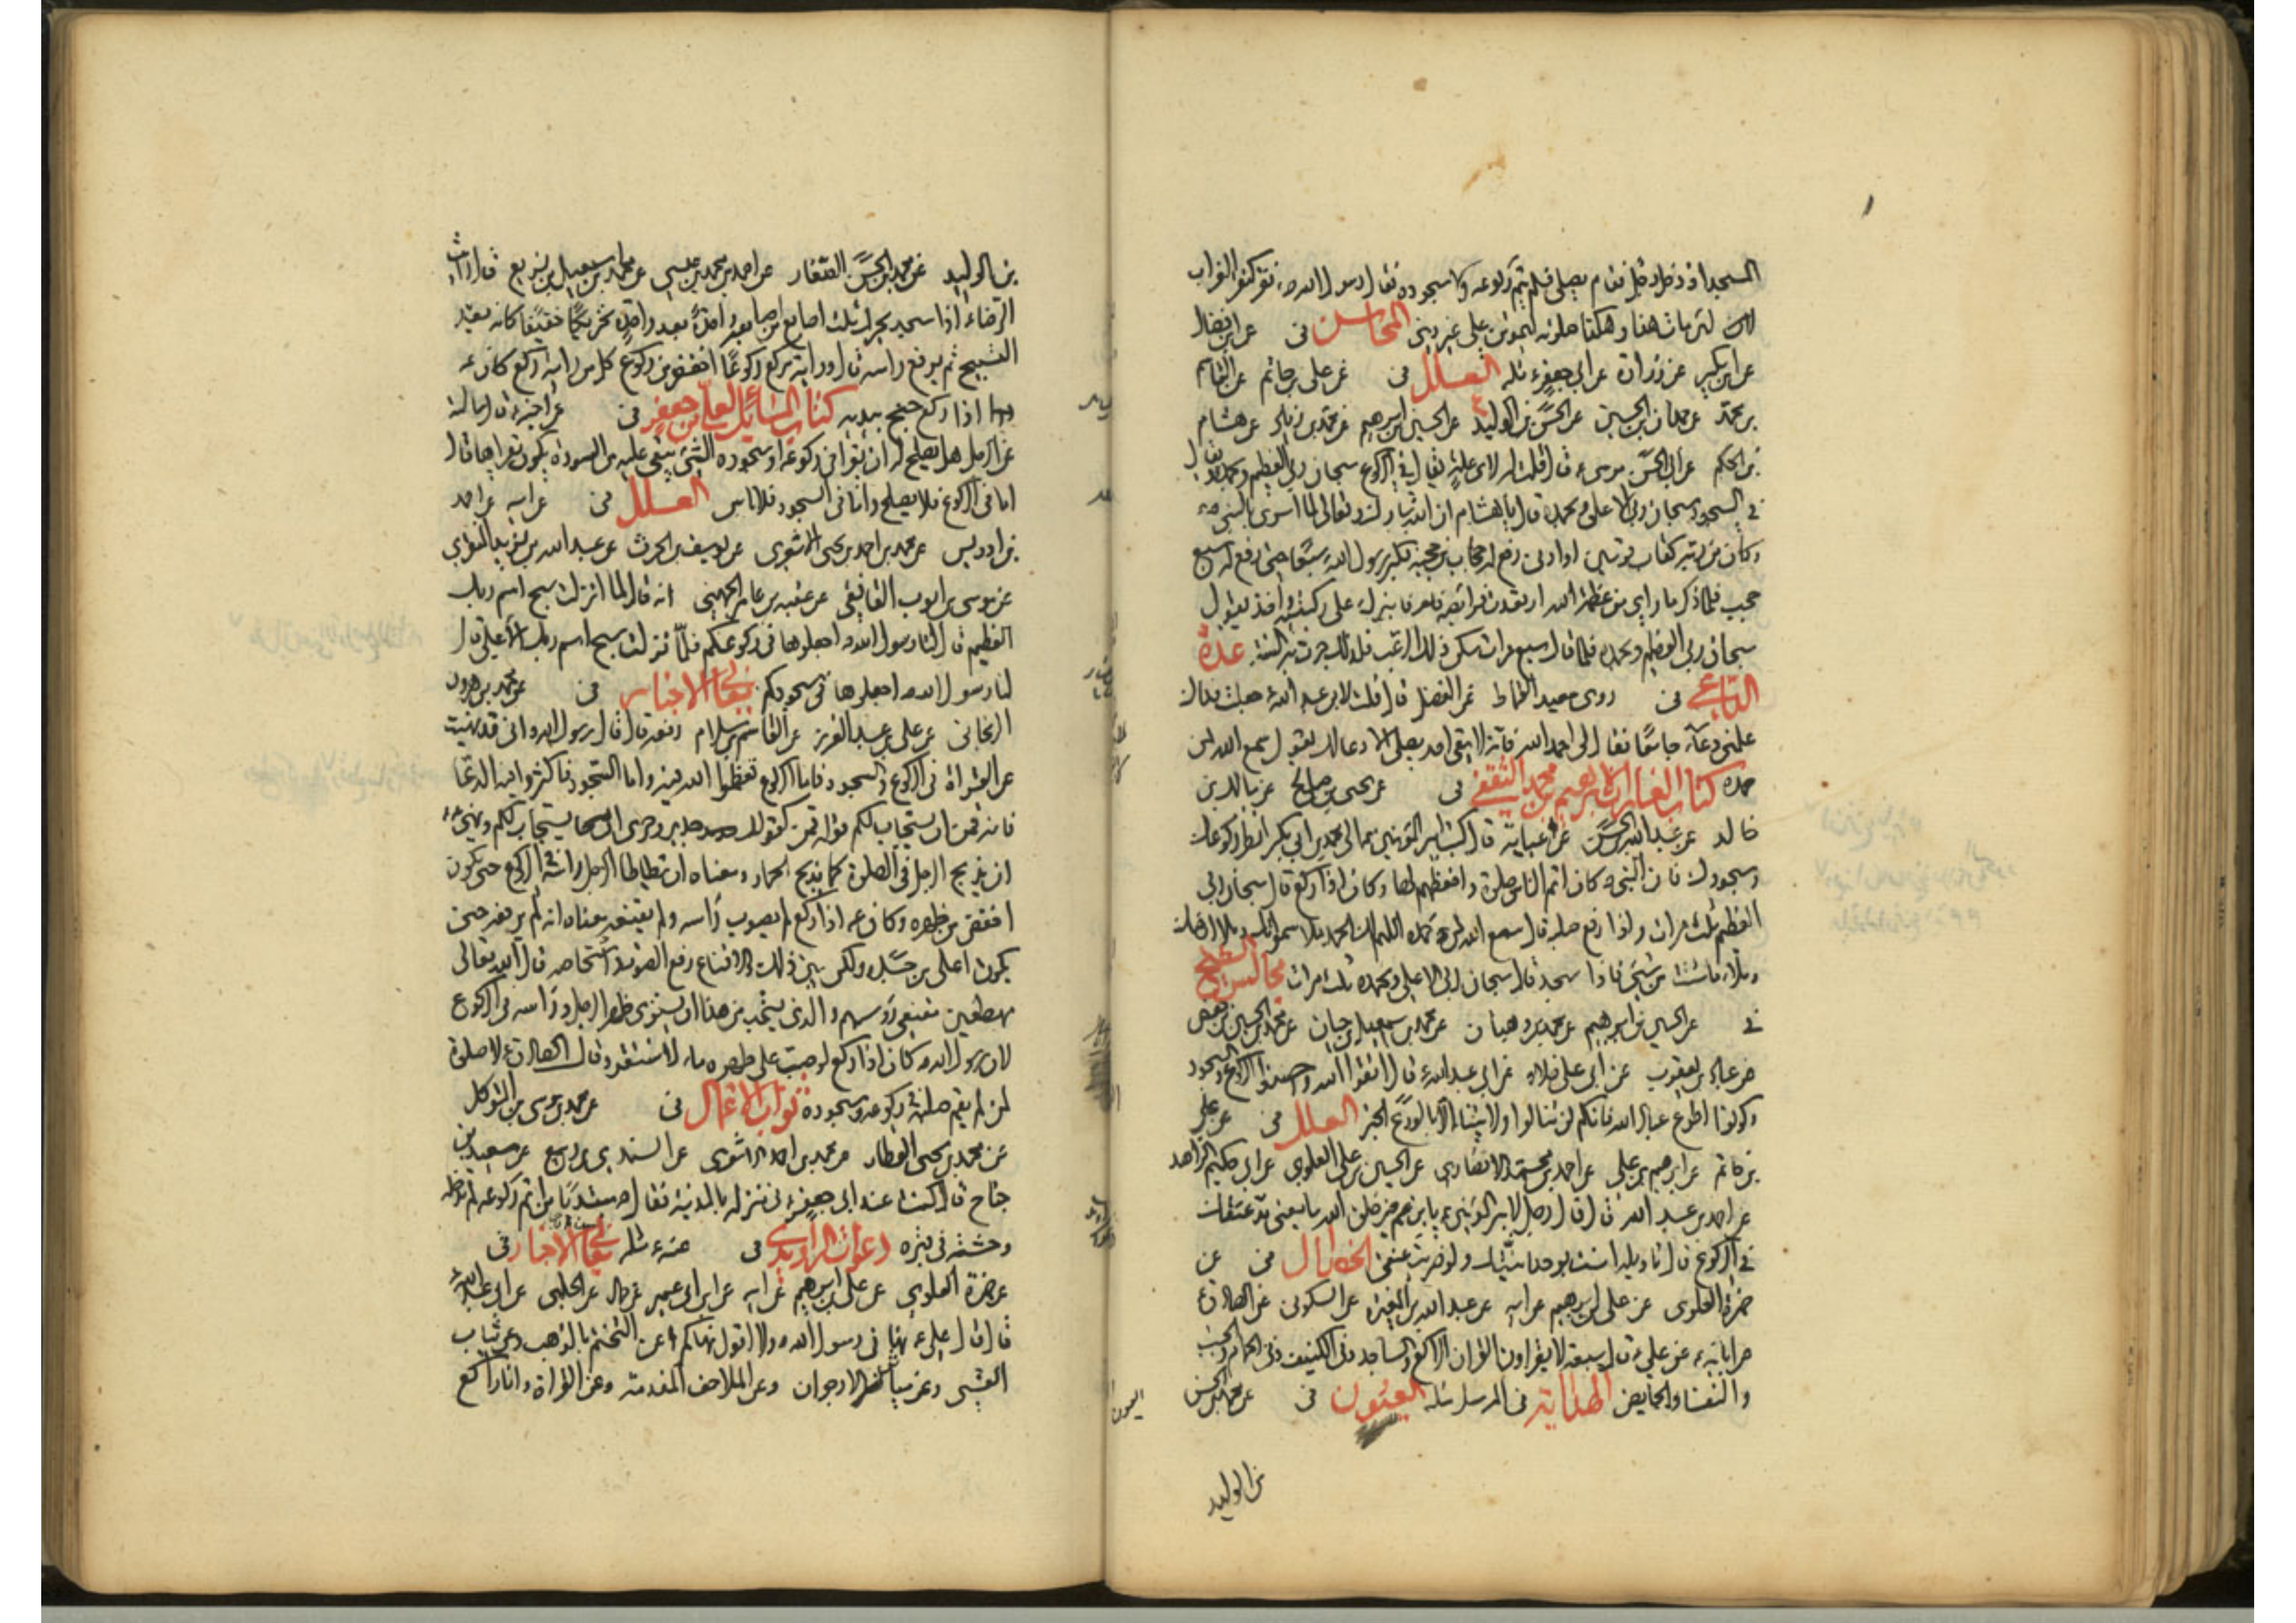 المسجد اذ دخل رجل فقام يصلي فلم يتم ركوعه ولا سجوده فقال رسول الله ص نقر كنقر الغراب
لئن مات هذا وهكذا صلوته ليموتن على غير ديني المحاسن في عن ابن فضال
عن ابن بكير عن زرارة عن ابي جعفر ع مثله العلل في عن علي بن حاتم عن القاسم
بن محمد عن حمدان بن الحسين عن الحسن بن الوليد عن الحسين بن ابرهيم عن محمد بن زياد عن هشام
بن الحكم عن ابي الحسن موسى ع قال قلت له لاي علة يقال في الركوع سبحان ربي العظيم وبحمده ويقال
في السجود سبحان ربي الاعلى وبحمده قال يا هشام ان الله تبارك وتعالى لما اسرى بالنبي ص
وكان من ربه كقاب قوسين او ادنى رفع له حجاب من حجبه فكبر رسول الله ص سبعا حتى رفع له سبع
حجب فلما ذكر ما راى من عظمة الله ارتعدت فرائصه فابترك على ركبتيه واخذ يقول
سبحان ربي العظيم وبحمده فلما قال سبع مرات سكن ذلك الرعب فلذلك جرت به السنة عدة
الداعي في روى سعيد القماط عن الفضل قال قلت لابي عبد الله ع جعلت فداك
علمني دعاء جامعا فقال لي احمد الله فانه لا يبقى احد يصلي الا دعا لك يقول سمع الله لمن
حمده كتاب الغارات لابرهيم بن محمد الثقفي في عن يحيى بن صالح عن مالك بن
خالد عن عبد الله بن الحسن عن عباية قال كتب امير المؤمنين ع الى محمد بن ابي بكر انظر ركوعك
وسجودك فان النبي ص كان اتم الناس صلوة واحفظهم لها وكان اذا ركع قال سبحان ربي
العظيم ثلث مرات واذا رفع صلبه قال سمع الله لمن حمده اللهم لك الحمد ملا سمواتك وملا ارضك
وملاء ما شئت من شيء فاذا سجد قال سبحان ربي الاعلى وبحمده ثلث مرات مجالس الشيخ
في عن الحسين بن ابرهيم عن محمد بن وهبان عن محمد بن اسمعيل بن حيان عن محمد بن الحسين بن حفص
عن عباد بن يعقوب عن ابي علي خلاد عن ابي عبد الله ع قال اتقوا الله واحسنوا الركوع والسجود
وكونوا اطوع عباد الله فانكم لن تنالوا ولايتنا الا بالورع الخبر العلل في عن علي
بن حاتم عن ابرهيم بن علي عن احمد بن محمد الانصاري عن الحسين بن علي العلوي عن ابي حكيم الزاهد
عن احمد بن عبد الله قال قال رجل لامير المؤمنين ع يا ابن عم خير خلق الله ما معنى مد عنقك
في الركوع قال تاويله امنت بوحدانيتك ولو ضربت عنقي الخصال في عن
حمزة العلوي عن علي بن ابرهيم عن ابيه عن عبد الله بن المغيرة عن السكوني عن الصادق ع
عن ابائه ع عن علي ع قال سبعة لا يقراون القران الراكع والساجد وفي الكنيف وفي الحمام والجنب
والنفساء والحايض الهداية في المرسل مثله العيون في عن محمد بن الحسن
بن الوليد
بن الوليد عن محمد بن الحسن الصفار عن احمد بن محمد بن عيسى عن محمد بن اسمعيل بن بزيع قال رايت
الرضا ع اذا سجد يحرك ثلث اصابع من اصابعه واحدة بعد واحدة تحريكا خفيفا كانه يعد
التسبيح ثم يرفع راسه قال ورايته يركع ركوعا اخفض من ركوع كل من رايته ركع كان
اذا ركع جنح بيديه كتاب المسائل لعلي بن جعفر في عن اخيه ع قال سالته
عن الرجل هل يصلح له ان يقرا في ركوعه او سجوده الشيء يبقى عليه من السورة يكون يقراها قال
اما في الركوع فلا يصلح واما في السجود فلا باس العلل في عن ابيه عن احمد
بن ادريس عن محمد بن احمد بن يحيى الاشعري عن يوسف بن الحرث عن عبد الله بن يزيد المنقري
عن موسى بن ايوب الغافقي عن عقبة بن عامر الجهني انه قال لما انزلت سبح اسم ربك
العظيم قال لنا رسول الله ص اجعلوها في ركوعكم فلما نزلت سبح اسم ربك الاعلى قال
لنا رسول الله ص اجعلوها في سجودكم معاني الاخبار في عن محمد بن هرون
الزنجاني عن علي بن عبد العزيز عن القاسم بن سلام رفعه قال قال رسول الله ص اني قد نهيت
عن القراة في الركوع والسجود فاما الركوع فعظموا الله فيه واما السجود فاكثروا فيه الدعا
فانه قمن ان يستجاب لكم قوله قمن كقولك جدير وحري ان يستجاب لكم ونهى ص
ان يذبح الرجل في الصلوة كما يذبح الحمار ومعناه ان يطاطا الرجل راسه في الركوع حتى يكون
اخفض من ظهره وكان ع اذا ركع لم يصوب راسه ولم يقنعه معناه انه لم يرفعه حتى
يكون اعلى من جسده ولكن بين ذلك والاقناع رفع الراس واشخاصه قال الله تعالى
مهطعين مقنعي رؤسهم والذي يستحب من هذا ان يستوي ظهر الرجل وراسه في الركوع
لان رسول الله ص كان اذا ركع لو صب على ظهره ماء لاستقر وقال الصادق ع لا صلوة
لمن لم يقم صلبه في ركوعه وسجوده ثواب الاعمال في عن محمد بن موسى بن المتوكل
عن محمد بن يحيى العطار عن محمد بن احمد الاشعري عن السندي بن ربيع عن سعيد بن
جناح قال كنت عند ابي جعفر ع في منزله بالمدينة فقال مبتدئا من اتم ركوعه لم تدخله
وحشة في قبره دعوات الراوندي في عنه ع مثله معاني الاخبار في
عن حمزة العلوي عن علي بن ابرهيم عن ابيه عن ابن ابي عمير عن حماد عن الحلبي عن ابي عبد الله ع
قال قال علي ع نهاني رسول الله ص ولا اقول نهاكم عن التختم بالذهب وعن ثياب
القسي وعن مياثر الارجوان وعن الملاحف المفدمة وعن القراة وانا راكع